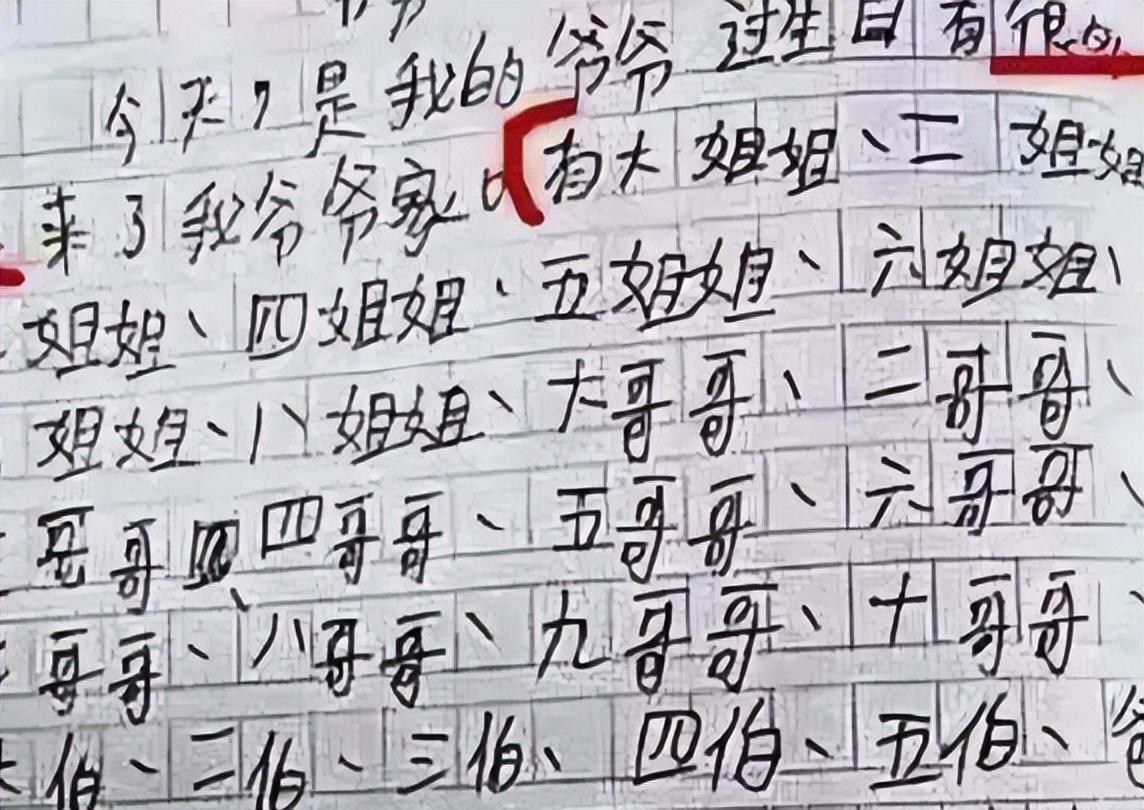 今天,是我的爷爷过生日有很
来了我爷爷家。有大姐姐、二姐姐
姐姐、四姐姐、五姐姐、六姐姐、
姐姐、八姐姐、大哥哥、二哥哥、
哥哥、四哥哥、五哥哥、六哥哥、
哥哥、八哥哥、九哥哥、十哥哥、
伯、二伯、三伯、四伯、五伯、